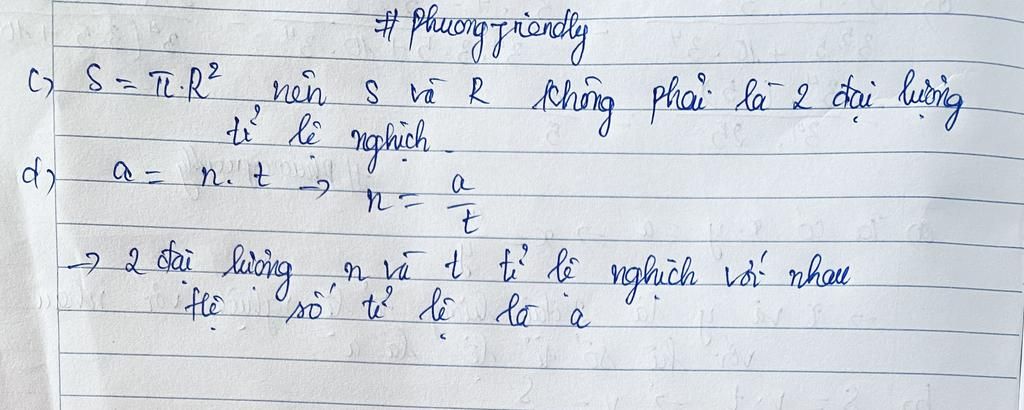 # Phuongfriendly
c) S = π.R² nên S và R không phải là 2 đại lượng
tỉ lệ nghịch.
d) a = n.t → n = a/t
→ 2 đại lượng n và t tỉ lệ nghịch với nhau
Hệ số tỉ lệ là a